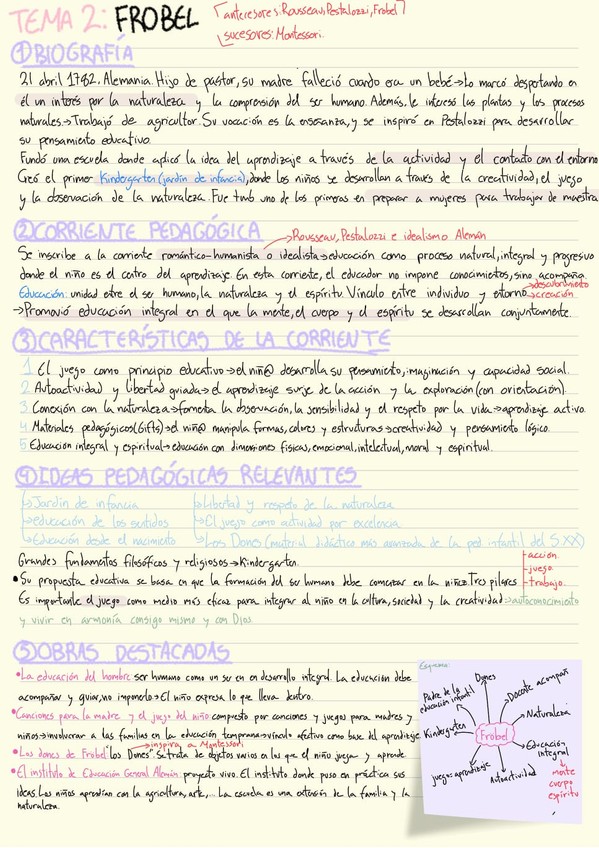 TEMA 2: FROBEL
anteresores: Rousseau, Pestalozzi, Frobel
sucesores: Montessori.
① BIOGRAFÍA
21 abril 1782. Alemania. Hijo de pastor, su madre falleció cuando era un bebé→Lo marcó despertando en
él un interés por la naturaleza y la comprensión del ser humano. Además, le interesó las plantas y los procesos
naturales.→Trabajó de agricultor. Su vocación es la enseranza, y se inspiró en Pestalozzi para desarrollar
su pensamiento educativo.
Fundó una escuela donde aplicó la idea del aprendizaje a través de la actividad y el contacto con el entorno
Creó el primer Kindergarten (jardín de infancia), donde los niños se desarrollan a través de la creatividad, el juego
y la observación de la naturaleza. Fue tmb uno de los primeros en preparar a mujeres para trabajar de maestra
② CORRIENTE PEDAGÓGICA
→Rousseau, Pestalozzi e idealismo Alemán
Se inscribe a la corriente romántico-humanista o idealista→educación como proceso natural, integral y progresivo
donde el niño es el centro del aprendizaje. En esta corriente, el educador no impone conocimientos, sino acompaña.
Educación: unidad entre el ser humano, la naturaleza y el espíritu. Vínculo entre individuo y entorno →descubrimiento
→creación
→Promovió educación integral en el que la mente, el cuerpo y el espíritu se desarollan conjuntamente.
③ CARACTERÍSTICAS DE LA CORRIENTE
1 El juego como principio educativo→el niñ@ desarrolla su pensamiento, imaginación y capacidad social.
2 Autoactividad y libertad guiada→el aprendizaje surje de la acción y la exploración (con orientación).
3 Conexión con la naturaleza→fomenta la observación, la sensibilidad y el respeto por la vida→aprendizje activo.
4 Materiales pedagógicos (Gifts)→el niñ@ manipula formas, colores y estructuras→creatividad y pensamiento lógico.
5 Educación integral y espiritual→educación con dimensiones físicas, emocional, intelectual, moral y espiritual.
④ IDEAS PEDAGÓGICAS RELEVANTES
→Jardín de infancia
→educación de los sentidos
→Educación desde el nacimiento
→Libertad y respeto de la naturaleza
→El juego como actividad por excelencia.
→Los Dones (material didáctico más avanzada de la ped infantil del S.XX)
Grandes fundamentos filosóficos y religiosos→Kindergarten.
•Su propuesta educativa se basa en que la formación del ser humano debe comenzar en la niñez. Tres pilares
acción.
juego.
trabajo.
Es importante el juego como medio más eficaz para integrar al niño en la cultura, sociedad y la creatividad→autoconocimiento
y vivir en armonía consigo mismo y con Dios.
⑤ OBRAS DESTACADAS
•La educación del hombre: ser humano como un ser en en desarrollo integral. La educación debe
acompañar y guiar, no imponerlo→El niño expresa lo que lleva dentro.
•Canciones para la madre y el juego del niño: compuesto por canciones y juegos para madres y
niños→involucrar a las familias en la educación temprana→vínculo afectivo como base del aprendizaje
→inspira a Montessori
•Los dones de Frobel "los Dones". Se trata de objetos varios en los que el niño juega y aprende.
•El instituto de Educación General Alemán: proyecto vivo. El instituto donde puso en práctica sus
ideas. Los niños aprendían con la agricultura, arte,... La escuela es una extensión de la familia y la
naturaleza.
Esquema:
Frobel
Dones
Docente acompañ
Naturaleza
Educación
integral
mente
cuerpo
espíritu
Autoactividad
juego: aprendizaje
Kindergarten
Padre de la
educación infantil